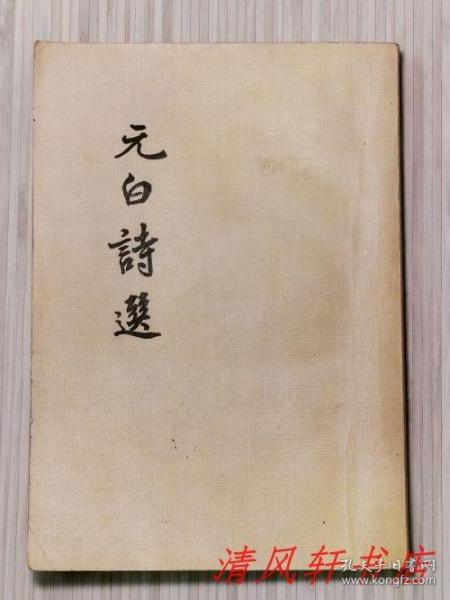 元白詩選
清风轩书店
孔夫子旧书网
www.kongfz.com